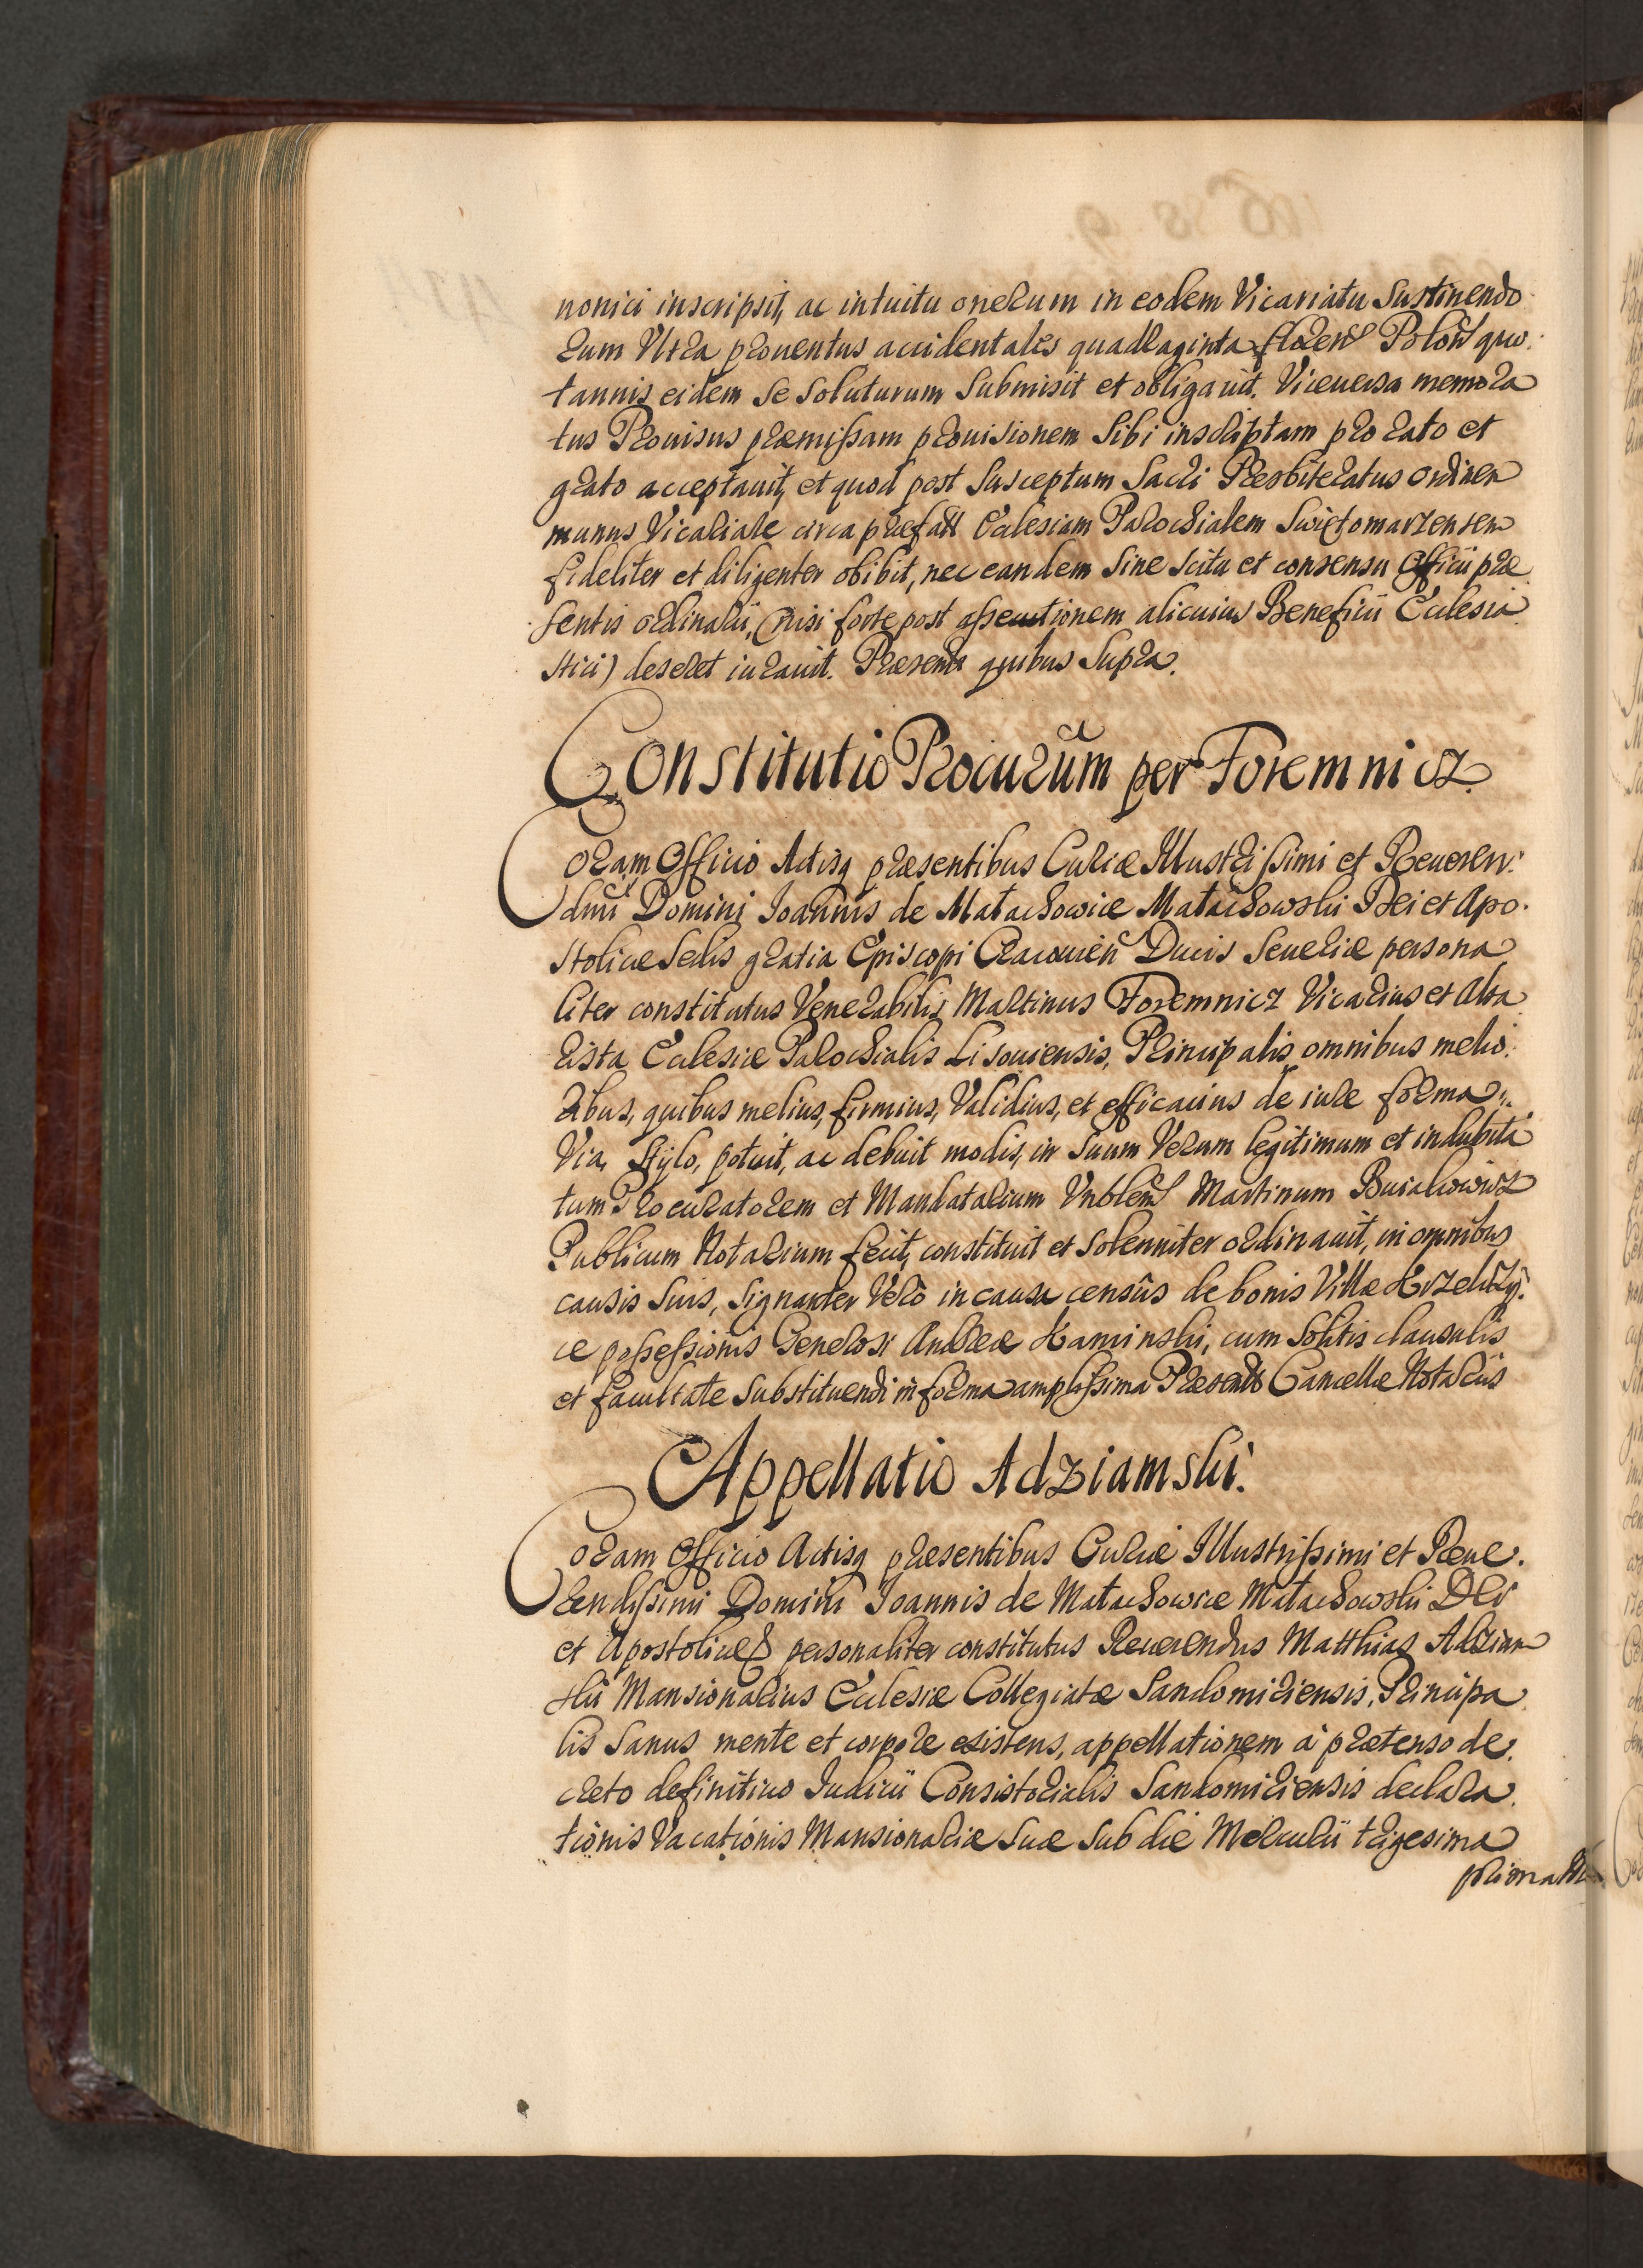 nonici inscripsit, ac intuitu onerum in eodem Vicariatu sustinendo
rum Vltra prouentus accidentales quadraginta floren Polon quo
tannis eidem se soluturum submisit et obligauit. Viceuersa memora
tus Prouisus præmissam prouisionem sibi inscriptam pro rato et
grato acceptauit, et quod post susceptum Sacri Presbiteratus ordinem
munus Vicariale circa præfatt Ecclesiam Parochialem Swiętomarzensem
fideliter et diligenter obibit, nec eandem sine scitu et consensu Officii præ
sentis ordinarii, (nisi forte post assecutionem alicuius Beneficii Ecclesia
stici) deseret iurauit. Præsentt quibus supra.
Constitutio Procurũm per Foremnicz
Coram Officio Actisq præsentibus Curiæ Illustrissimi et Reueren:
dmi Domini Joannis de Małachowice Małachowski Dei et Apo.
stolicæ Sedis gratia Episcopi Cracouien Ducis Seueriæ persona
liter constitutus Venerabilis Martinus Foremnicz Vicarius et Alta
rista Ecclesiæ Parochialis Lisouiensis, Principalis omnibus melio:
ribus, quibus melius, firmius, Validius, et efficacius de iure forma
Via, Stylo, potuit, ac debuit modis, in suum Verum legitimum et indubita
tum Procuratorem et Mandatarium Vnblem Martinum
Publicum Notarium fecit, constituit et solenniter ordinauit, in omnibus
causis suis, signanter Vero in causa censûs de bonis Villæ
ce possessionis Generosi Andreæ Kaminski, cum solitis clausulis
et facultate substituendi in forma amplissima Præsentt Cancellæ Notariis
Appellatio Adziamski.
Coram Officio Actisq præsentibus Curiæ Illustrissimi et Reue.
rendissimi Domini Joannis de Małachowice Małachowski Dei
et Apostolicæ personaliter constitutus Reuerendus Matthias Adziam
ski Mansionarius Ecclesiæ Collegiatæ Sandomiriensis, Principa
lis sanus mente et corpore existens, appellationem à prætenso de.
creto definitiuo Iudicii Consistorialis Sandomiriensis declara
tionis Vacationis Mansionariæ suæ sub die Mercurii trigesima
prima